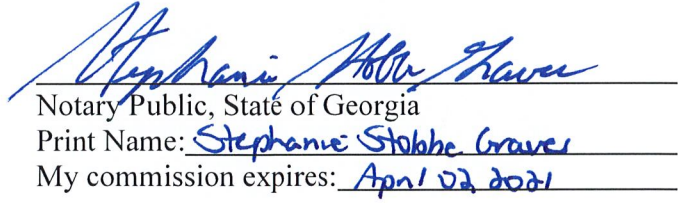 Stephanie Stobbe Graves
Notary Public, State of Georgia
Print Name: Stephanie Stobbe Graves
My commission expires: April 02 2021